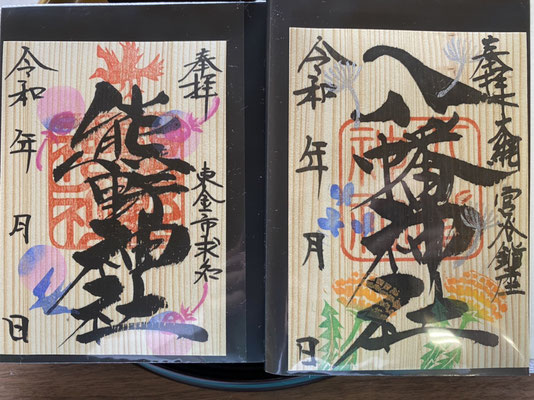 奉拝
東金市求名
熊野神社
令和 年 月 日
奉拝 大網 宮谷鎮座
八幡神社
令和 年 月 日